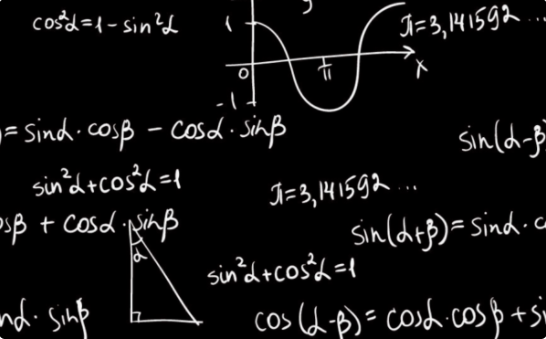 cos²α=1-sin²α
1
y
π=3,141592...
0
π
x
-1
)=sinα·cosβ - cosα·sinβ
sin(α-β)
sin²α+cos²α=1
π=3,141592...
osβ + cosα·sinβ
sin(α+β)=sinα·c
α
sin²α+cos²α=1
nα·sinβ
cos(α-β)=cosα·cosβ+si